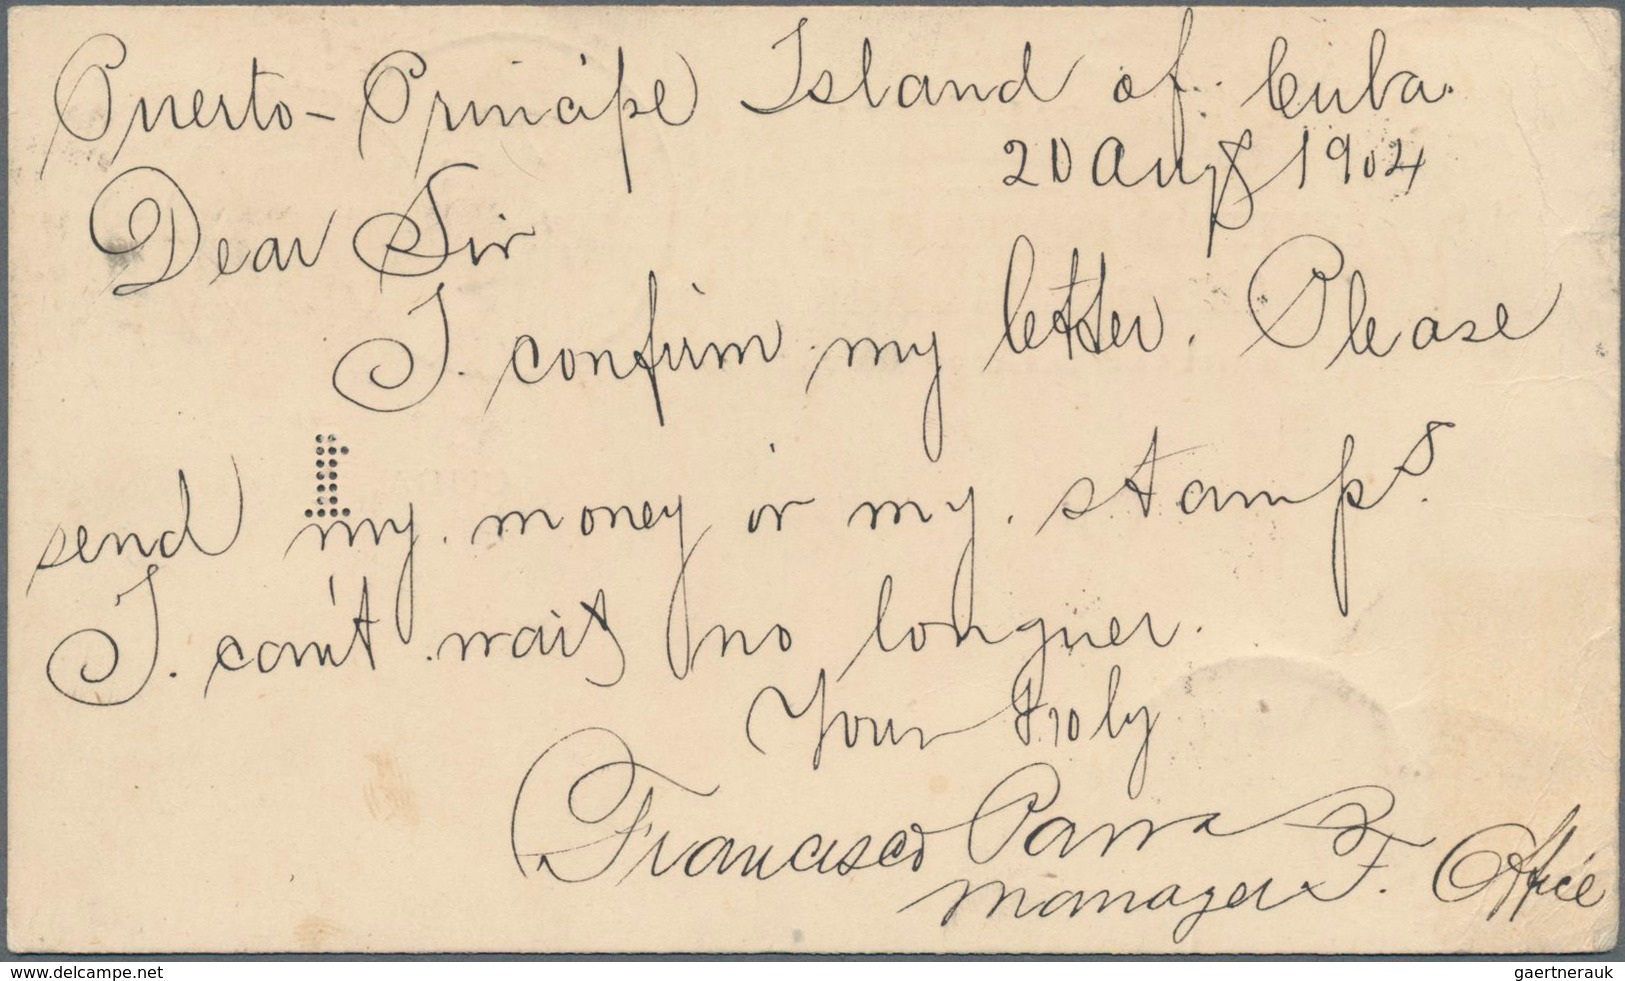 Puerto-Principe Island of Cuba.
20 Aug 1904
Dear Sir
I. confirm my letter. Please
send my money or my stamps.
I. can't wait no longuer.
Your troly
Francisco Parra
manager T. Office
www.delcampe.net
gaertnerauk